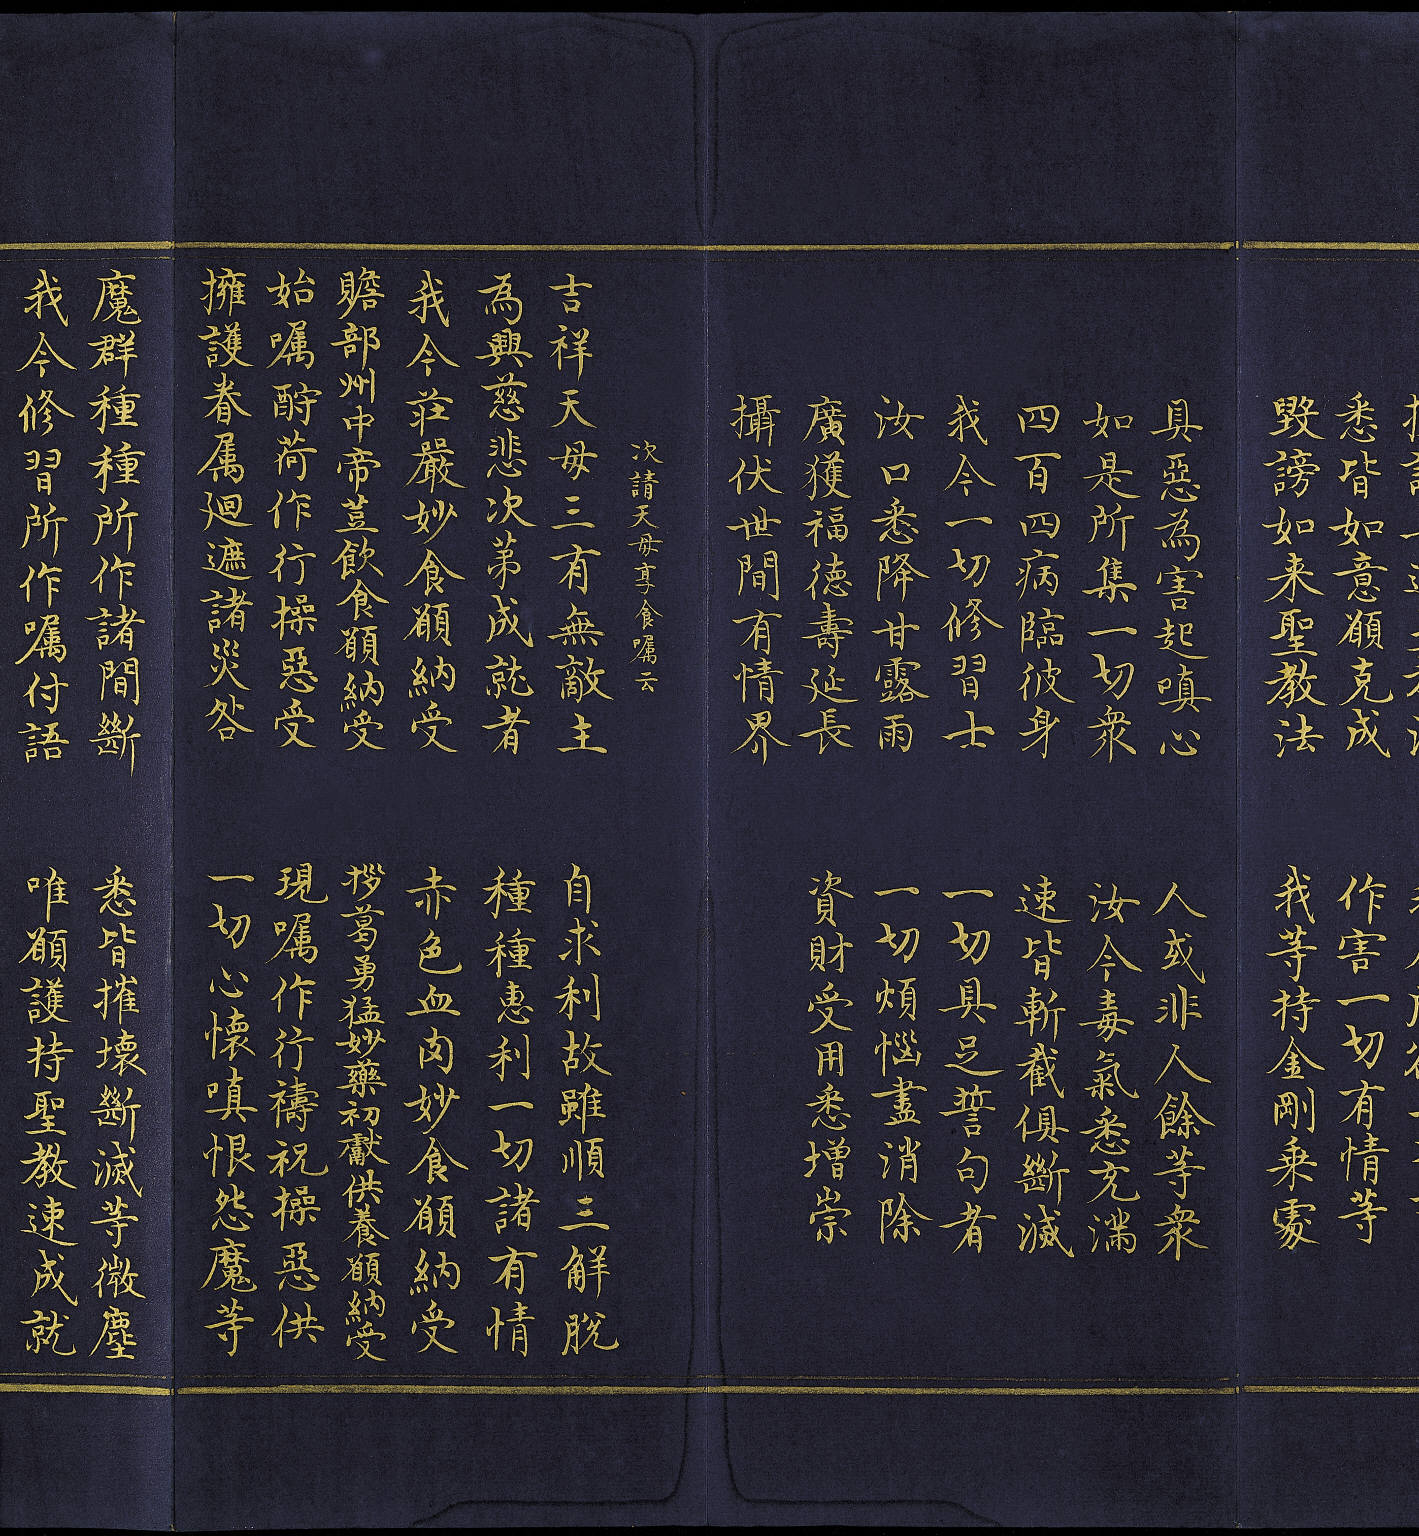 悉皆如意願克成　作害一切有情等
毀謗如来聖教法　我等持金剛乗處
具惡為害起嗔心　人或非人餘等衆
如是所集一切衆　汝今毒氣悉充滿
四百四病臨彼身　速皆斬截俱斷滅
我今一切修習士　一切具足誓句者
汝口悉降甘露雨　一切煩惱盡消除
廣獲福德壽延長　資財受用悉增崇
攝伏世間有情界
次請天母享食嘱云
吉祥天母三有無敵主　自求利故雖順三解脫
為興慈悲次第成就者　種種惠利一切諸有情
我今莊嚴妙食願納受　赤色血肉妙食願納受
贍部州中帝荳飲食願納受　拶葛勇猛妙藥初獻供養願納受
始嘱酧荷作行操惡受　現嘱作行禱祝操惡供
擁護眷属廻遮諸災咎　一切心懷嗔恨怨魔等
魔群種種所作諸間斷　悉皆摧壞斷滅等微塵
我今修習所作嘱付語　唯願護持聖教速成就